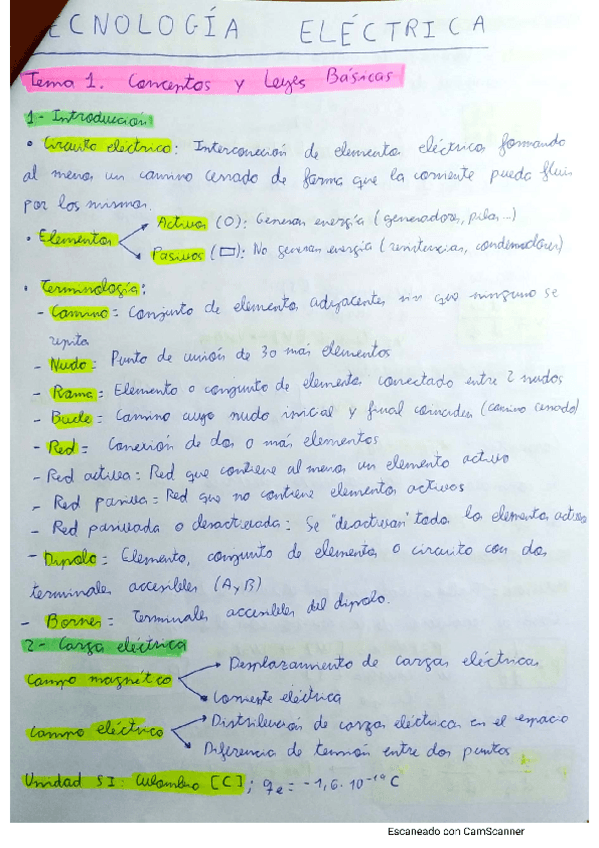 TECNOLOGÍA ELÉCTRICA
Tema 1. Conceptos y Leyes Básicas
1- Introducción:
• Circuito eléctrico: Interconexión de elementos eléctricos formando
al menos un camino cerrado de forma que la corriente pueda fluir
por los mismos.
• Elementos → Activos (O): Generan energía (generadores, pilas...)
→ Pasivos (▭): No generan energía (resistencias, condensadores)
• Terminología:
- Camino = Conjunto de elementos adyacentes sin que ninguno se
repita
- Nudo: Punto de unión de 3 o más elementos
- Rama = Elemento o conjunto de elementos conectado entre 2 nudos
- Bucle = Camino cuyo nudo inicial y final coinciden (camino cerrado)
- Red = Conexión de dos o más elementos
- Red activa: Red que contiene al menos un elemento activo
- Red pasiva = Red que no contiene elementos activos
- Red pasivada o desactivada: Se "desactivan" todos los elementos activos
- Dipolo = Elemento, conjunto de elementos o circuito con dos
terminales accesibles (A y B)
- Bornes = Terminales accesibles del dipolo.
2- Carga eléctrica
Campo magnético → Desplazamiento de cargas eléctricas
→ Corriente eléctrica
Campo eléctrico → Distribución de cargas eléctricas en el espacio
→ Diferencia de tensión entre dos puntos
Unidad SI: Culombio [C]; qe = -1,6·10⁻¹⁹ C
Escaneado con CamScanner